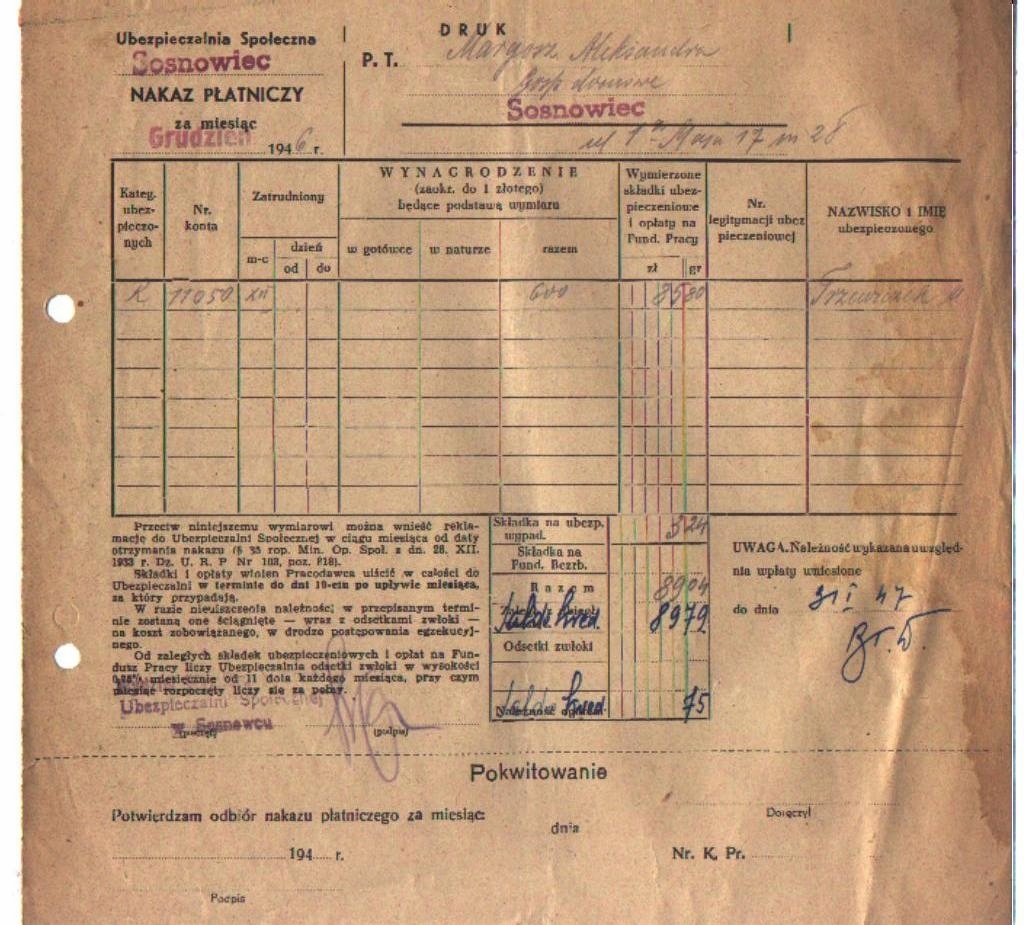 DRUK
Ubezpieczalnia Społeczna
Sosnowiec
NAKAZ PŁATNICZY
za miesiąc
Grudzień
1946 r.
P. T. Margosz Aleksandra
Gosp domowe
Sosnowiec
ul 1 Maja 17 m 28
Kateg. ubez-
pieczo-
nych
Nr.
konta
Zatrudniony
m-c
dzień
od do
WYNAGRODZENIE
(zaokr. do 1 złotego)
będące podstawą wymiaru
w gotówce w naturze razem
Wymierzone
składki ubez-
pieczeniowe
i opłaty na
Fund. Pracy
zł gr
Nr.
legitymacji ubez
pieczeniowej
NAZWISKO i IMIĘ
ubezpieczonego
R 11050 XII 600 85 80
Przeciw niniejszemu wymiarowi można wnieść rekla-
mację do Ubezpieczalni Społecznej w ciągu miesiąca od daty
otrzymania nakazu (§ 35 rop. Min. Op. Społ. z dn. 28. XII.
1933 r. Dz. U. R. P Nr 103, poz. 818).
Składki i opłaty winien Pracodawca uiścić w całości do
Ubezpieczalni w terminie do dni 10-ciu po upływie miesiąca,
za który przypadają.
W razie nieuiszczenia należności w przepisanym termi-
nie zostaną one ściągnięte — wraz z odsetkami zwłoki — na
koszt zobowiązanego, w drodze postępowania egzekucyj-
nego.
Od zaległych składek ubezpieczeniowych i opłat na Fun-
dusz Pracy liczy Ubezpieczalnia odsetki zwłoki w wysokości
miesięcznie od 11 dnia każdego miesiąca, przy czym
miesiąc rozpoczęty liczy się za pełny.
Ubezpieczalni Społecznej
w Sosnowcu
(podpis)
Składka na ubezp.
wypad. 3 24
Składka na
Fund. Bezrb.
Razem 89 04
Saldo kred. 89 79
Odsetki zwłoki
Saldo kred. 75
UWAGA. Należność wykazana uwzględ-
nia wpłaty wniesione
do dnia 31 I 47
Pokwitowanie
Potwierdzam odbiór nakazu płatniczego za miesiąc:
dnia
Doręczył
194 r.
Nr. K. Pr.
Podpis